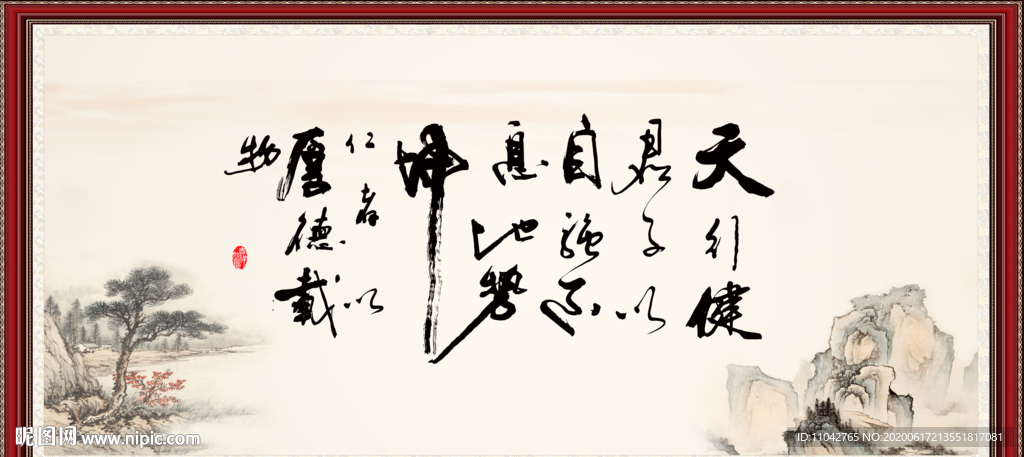 天行健
君子以
自強不
息地势
坤
仁者以
厚德載
物
昵图网 www.nipic.com
ID:11042765 NO:20200617213551817081